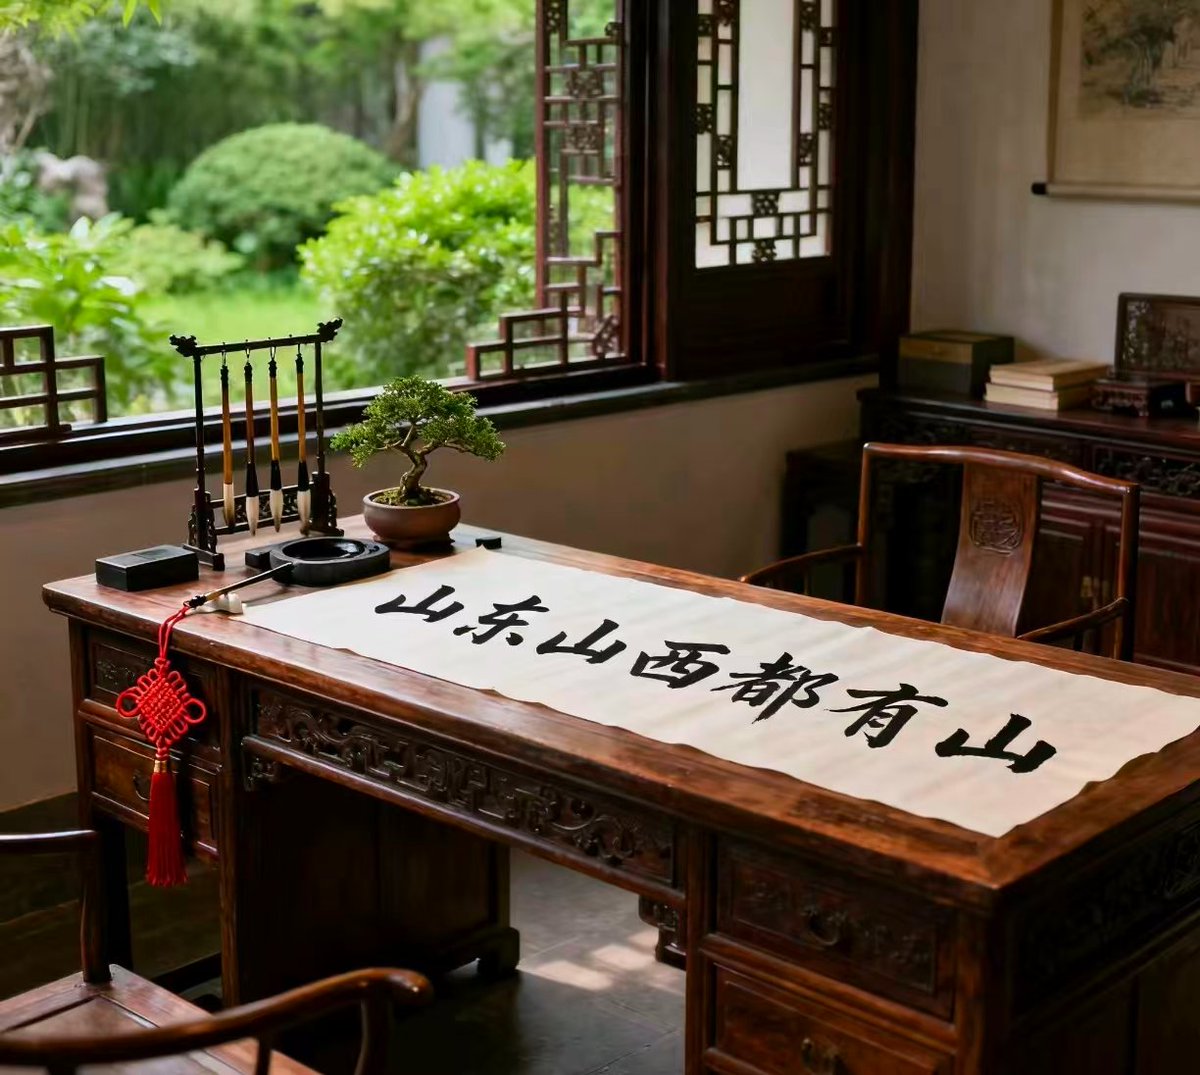 山东山西都有山